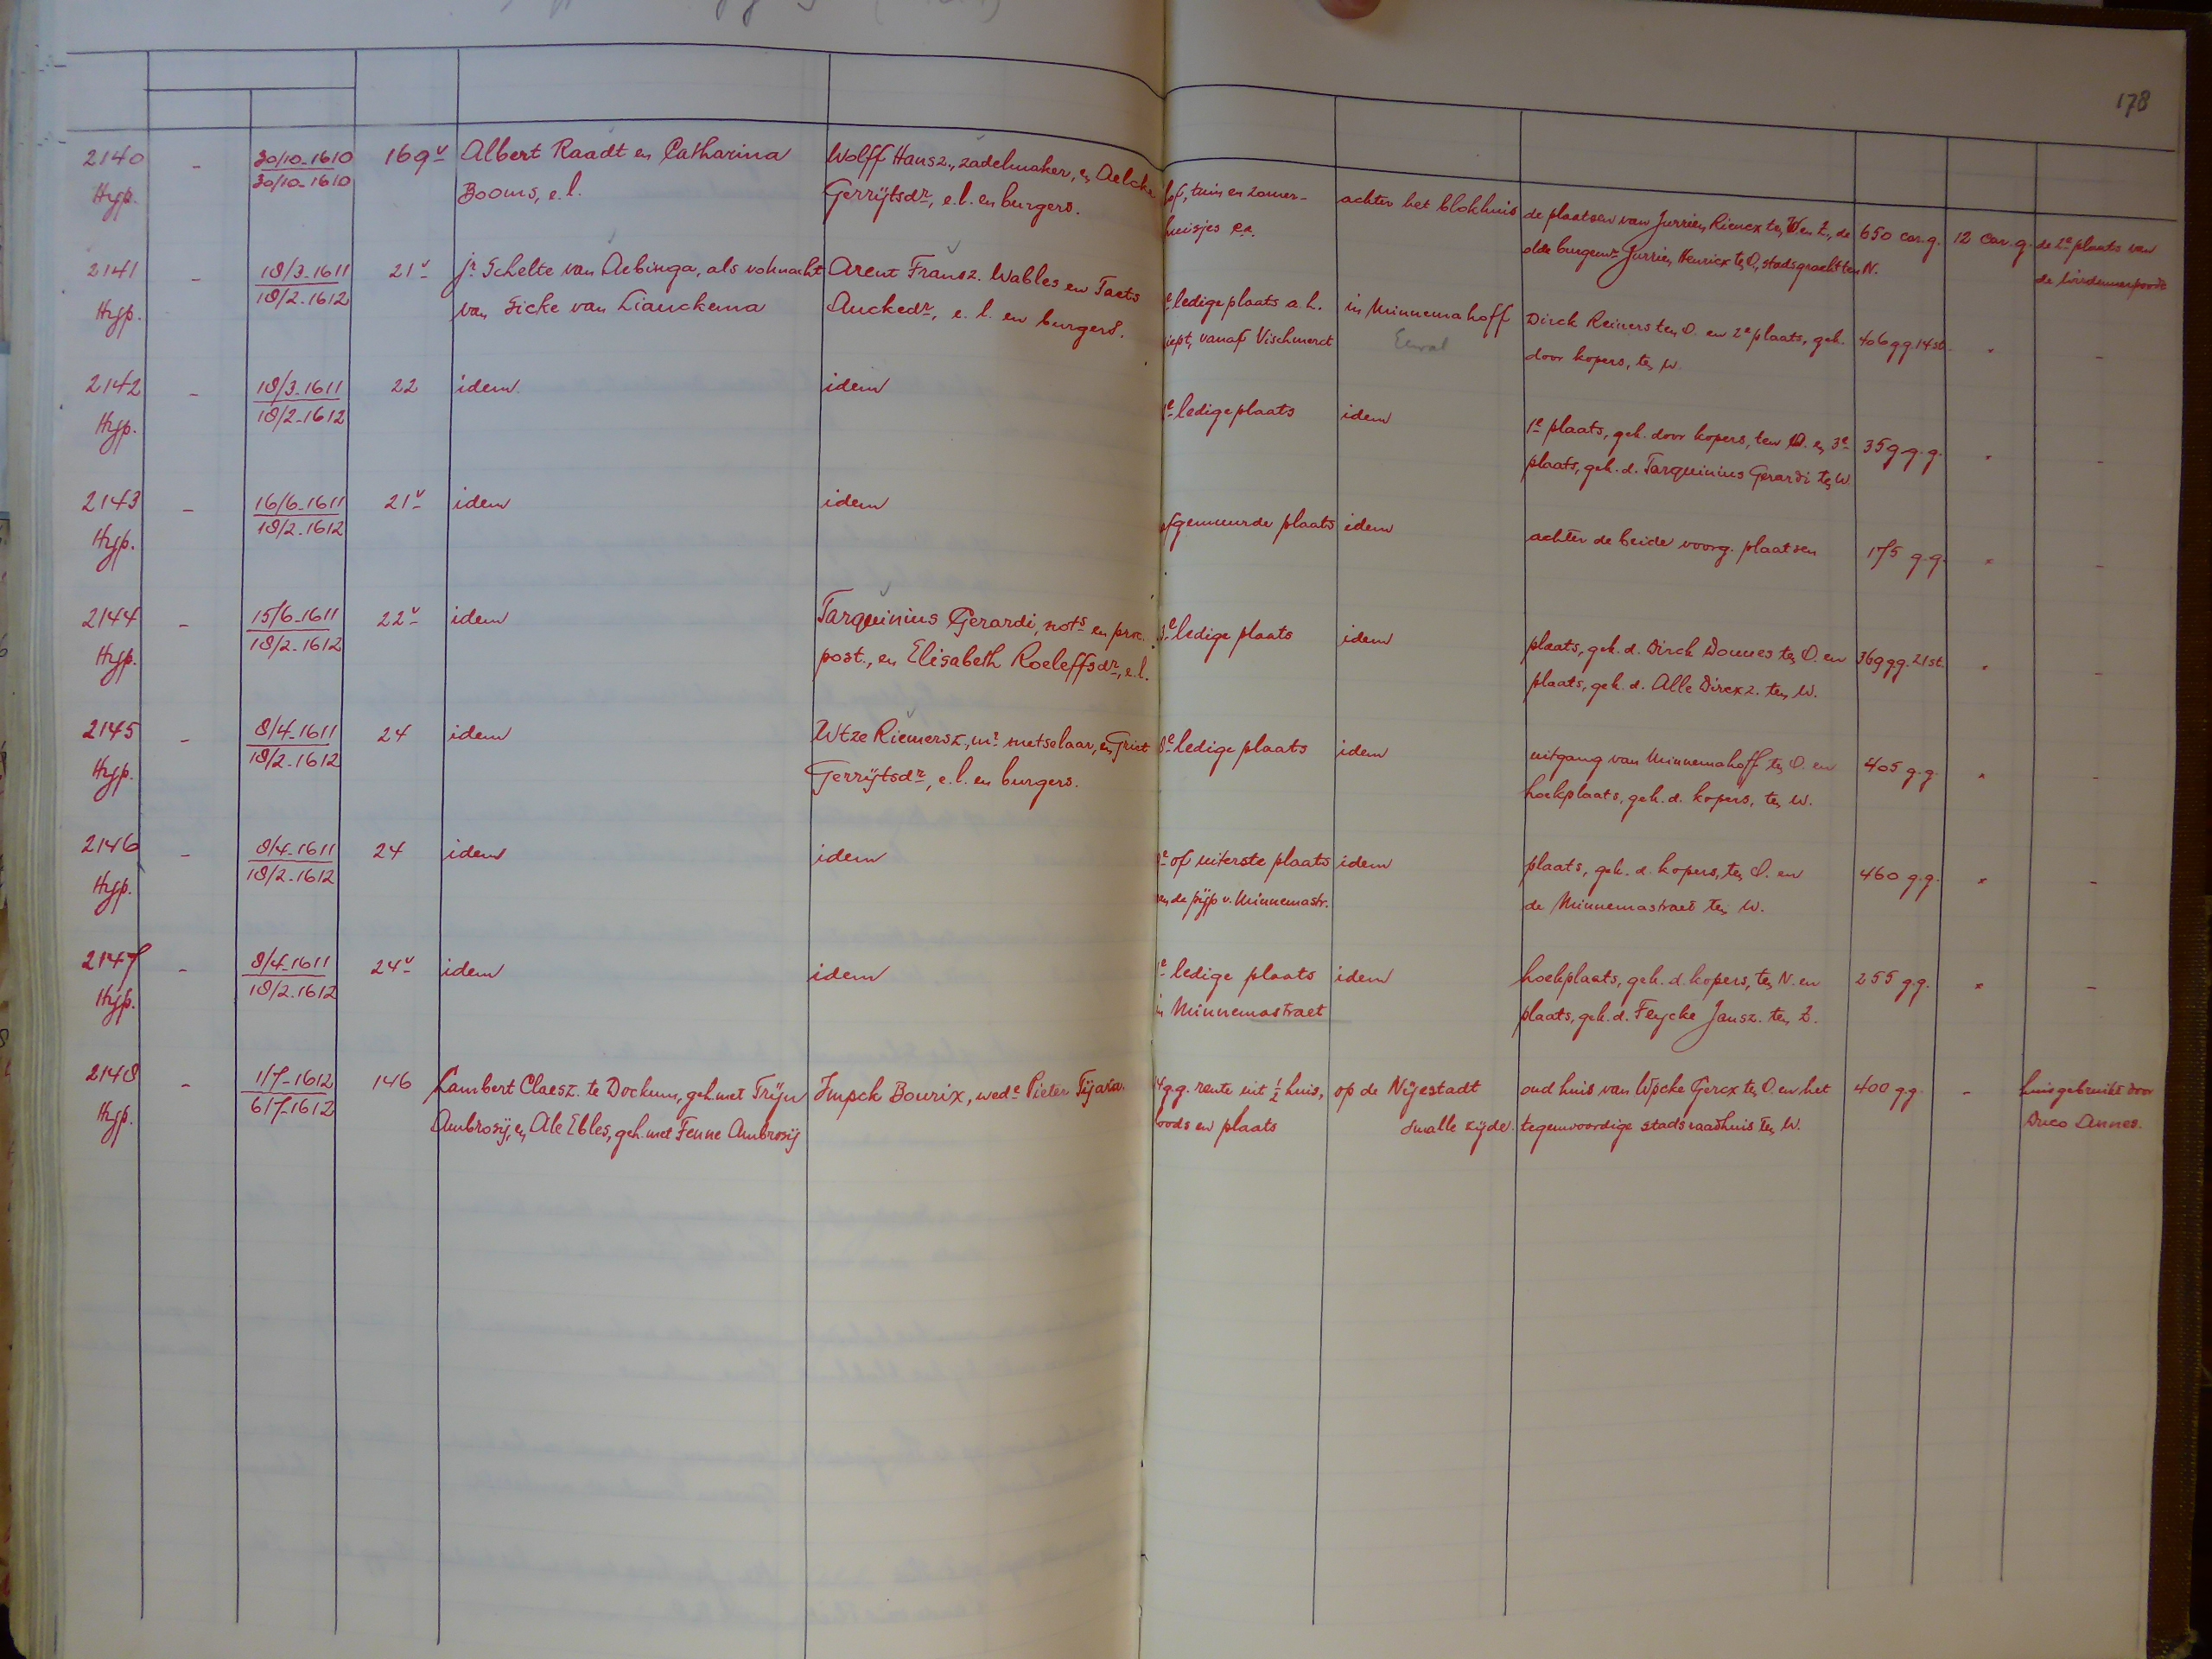 178
2140 - 30/10-1610 169v Albert Raadt en Catharina Wolff Hansz., zadelmaker, en Aelcke hof, tuin en zomer- achter het blokhuis de plaatsen van Jurrien Riencx ten W. en Z., de 650 car.g. 12 car.g. de 2e plaats van
Hyp. 30/10-1610 Booms, e.l. Gerrijtsdr, e.l. en burgers. huisjes c.a. olde burgemr Jurrien Henricx ten O., stadsgracht ten N. de Wirdumerpoort
2141 - 18/3-1611 21v jr. Schelte van Aebinga, als volmacht Arent Fransz. Wables en Taets e ledige plaats a.h. in Minnemahoff Dirck Reiners ten O. en 2e plaats, geh. 406 gg. 14 st. " -
Hyp. 18/2-1612 van Sicke van Liauckema Auckedr, e.l. en burgers. diept, vanaf Vischmerct Eewal door kopers, ten W.
2142 - 18/3-1611 22 idem idem e ledige plaats idem 1e plaats, geh. door kopers, ten O. en 3e 359 g.g. " -
Hyp. 18/2-1612 plaats, geh. d. Tarquinius Gerardi ten W.
2143 - 16/6-1611 21v idem idem afgemuurde plaats idem achter de beide voorg. plaatsen 175 g.g. " -
Hyp. 18/2-1612
2144 - 15/6-1611 22v idem Tarquinius Gerardi, nots en proc. 3e ledige plaats idem plaats, geh. d. Dirck Douues ten O. en 369 gg. 21 st. " -
Hyp. 18/2-1612 post., en Elisabeth Roeleffsdr, e.l. plaats, geh. d. Alle Dircxz. ten W.
2145 - 8/4-1611 24 idem Utze Riemersz., mr metselaar, en Griet 8e ledige plaats idem uitgang van Minnemahoff ten O. en 405 g.g. " -
Hyp. 18/2-1612 Gerrijtsdr, e.l. en burgers. hoekplaats, geh. d. kopers, ten W.
2146 - 8/4-1611 24 idem idem e of uiterste plaats idem plaats, geh. d. kopers, ten O. en 460 g.g. " -
Hyp. 18/2-1612 aan de pijp v. Minnemastr. de Minnemastraet ten W.
2147 - 8/4-1611 24v idem idem 1e ledige plaats idem hoekplaats, geh. d. kopers, ten N. en 255 g.g. " -
Hyp. 18/2-1612 in Minnemastraet plaats, geh. d. Feycke Jansz. ten Z.
2148 - 1/7-1612 146 Lambert Claesz. te Dockum, geh. met Trijn Impck Bourix, wede Pieter Tijara. 14 g.g. rente uit 1/2 huis, op de Nijestadt oud huis van Wpcke Gercx ten O. en het 400 g.g. - huis gebruikt door
Hyp. 6/7-1612 Ambrosij, en Ale Ebles, geh. met Fenne Ambrosij loods en plaats smalle zijde. tegenwoordige stadsraadhuis ten W. Duco Annes.